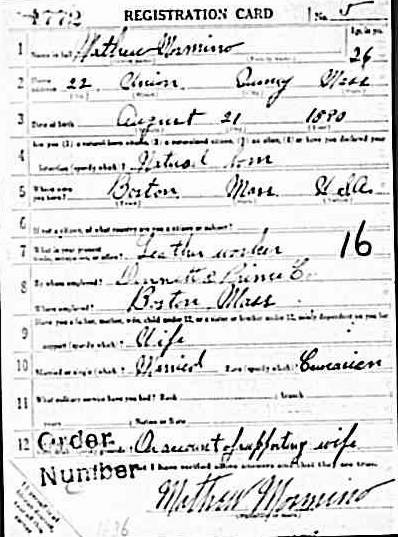 1772 REGISTRATION CARD No. 5
1 Name in full Mathew Mormino Age, in yrs. 26
2 Home address 22 Union Quincy Mass
3 Date of birth August 21 1890
Are you (1) a natural-born citizen, (2) a naturalized citizen, (3) an alien, (4) or have you declared your
4 intention (specify which)? Natural born
5 Where were you born? Boston Mass USA
6 If not a citizen, of what country are you a citizen or subject?
7 What is your present trade, occupation, or office? Leather worker 16
8 By whom employed? & Prime Co
Where employed? Boston Mass
Have you a father, mother, wife, child under 12, or a sister or brother under 12, solely dependent on you for
9 support (specify which)? Wife
10 Married or single (which)? Married Race (specify which)? Caucasian
11 What military service have you had? Rank Branch
years Nation or State
12 On account of supporting wife
Order
Number
I have verified above answers and that they are true.
Mathew Mormino